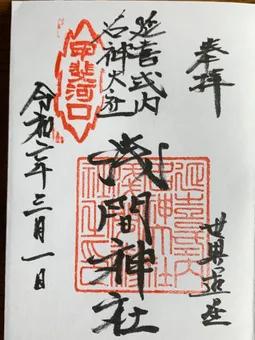 奉拝
世界遺産
延喜式内
名神大社
浅間神社
甲斐河口
令和二年三月一日